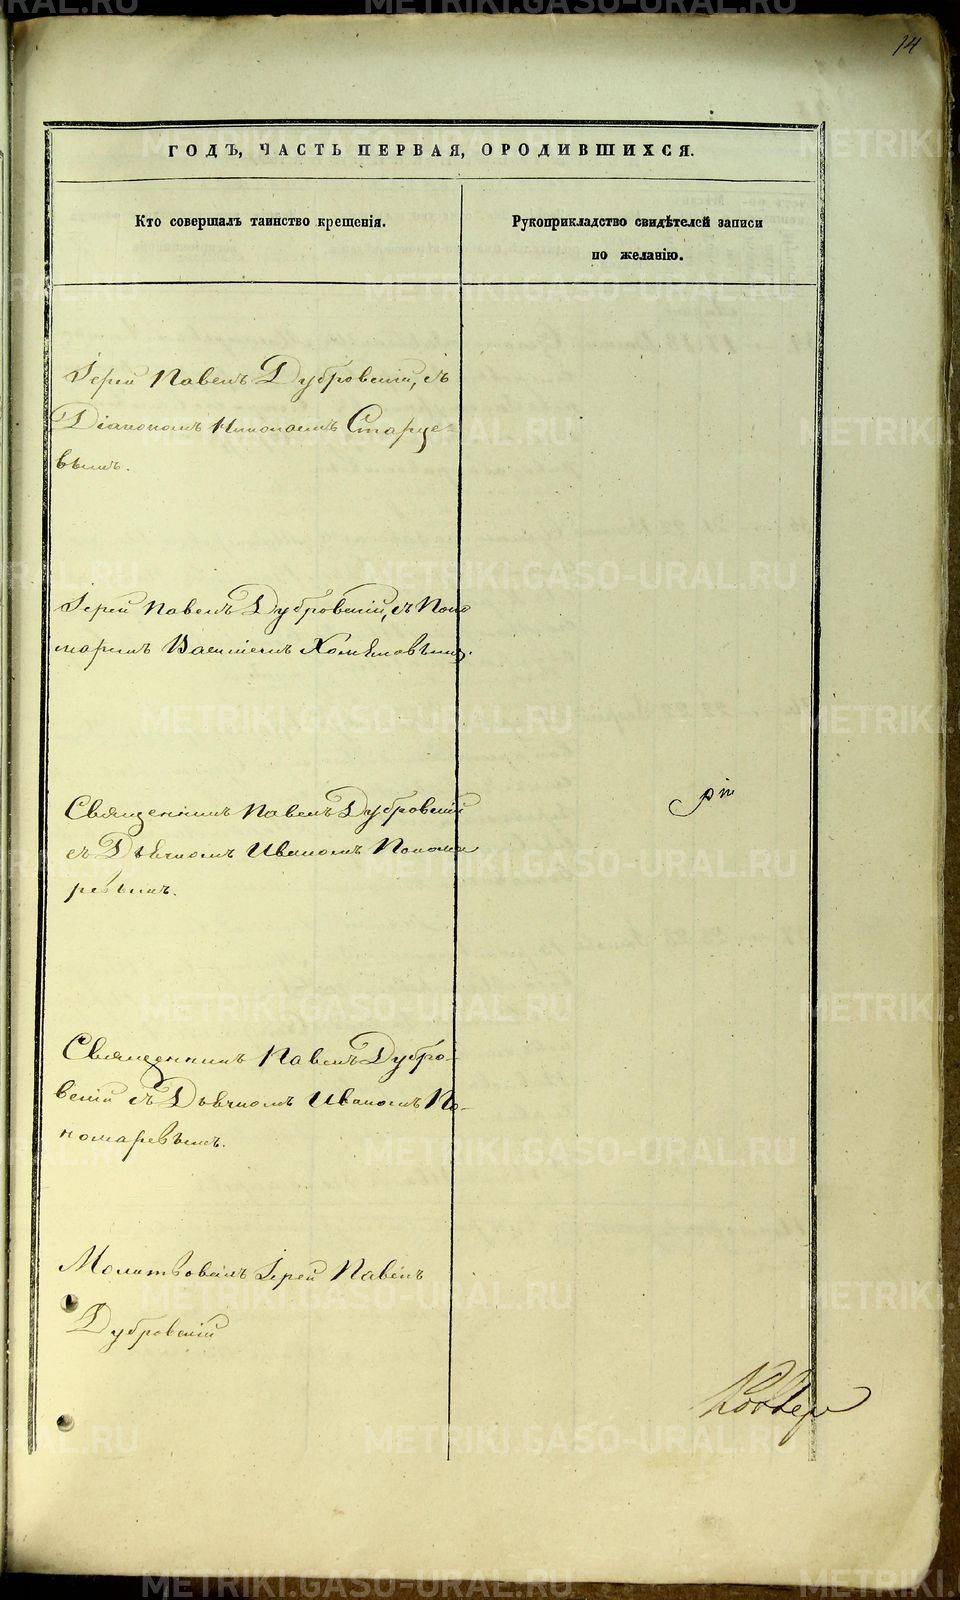 14
ГОДЪ, ЧАСТЬ ПЕРВАЯ, ОРОДИВШИХСЯ.
Кто совершалъ таинство крещенія.
Рукоприкладство свидѣтелей записи
по желанію.
Іерей Павелъ Дубровскій, съ
Діакономъ Николаемъ Старце-
вымъ.
Іерей Павелъ Дубровскій, съ Поно
маремъ Василіемъ Хомяковымъ.
Священникъ Павелъ Дубровскій
съ Дьячкомъ Иваномъ Понома
ревымъ.
Священникъ Павелъ Дубро-
вскій съ Дьячкомъ Иваномъ По-
номаревымъ.
Молитвовалъ Іерей Павелъ
Дубровскій
METRIKI.GASO-URAL.RU